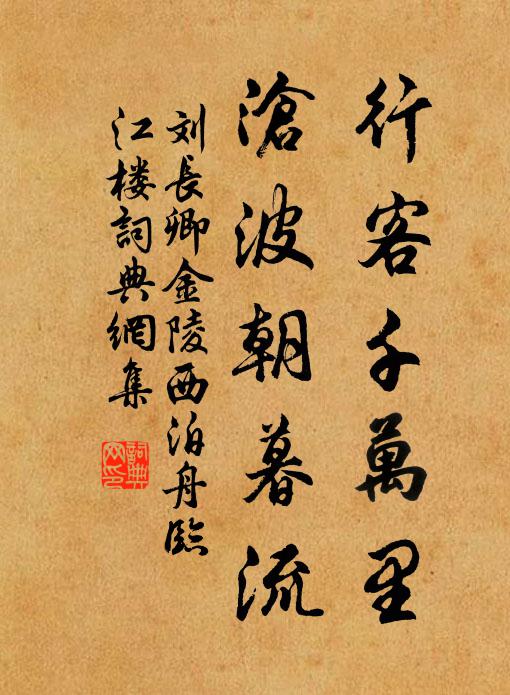 行客千萬里
滄波朝暮流
刘長卿金陵西泊舟臨
江楼詞典網集
詞典网印